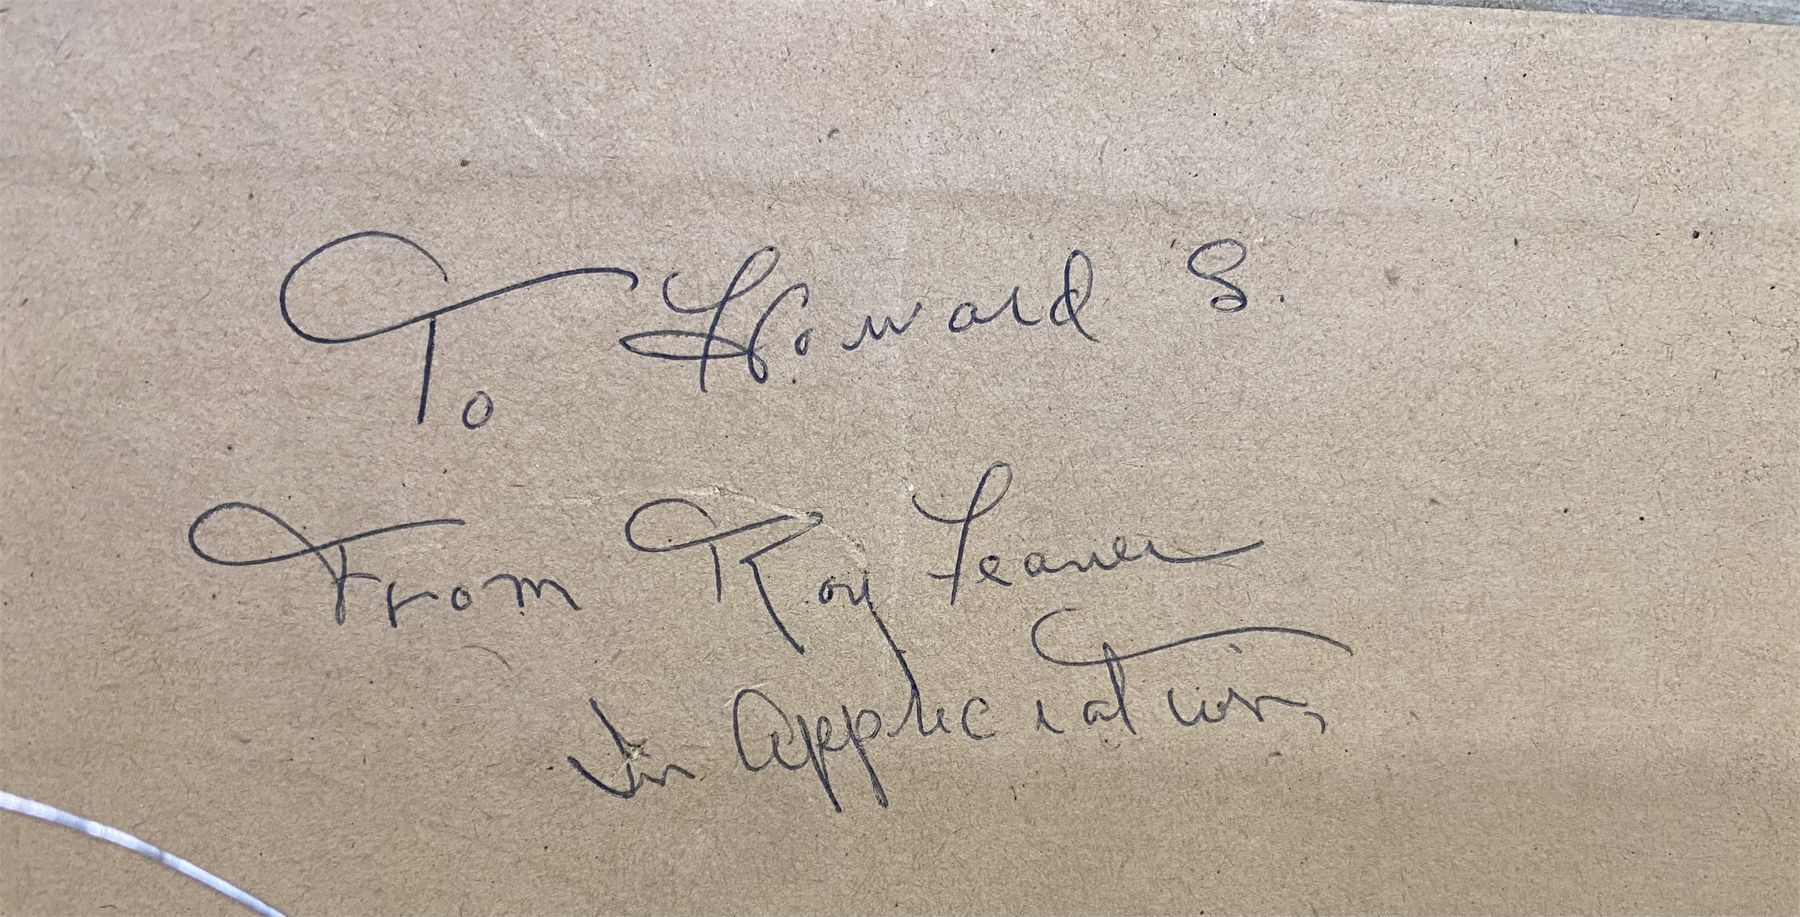 To Howard S.
From Roy Leaver
In Appreciation